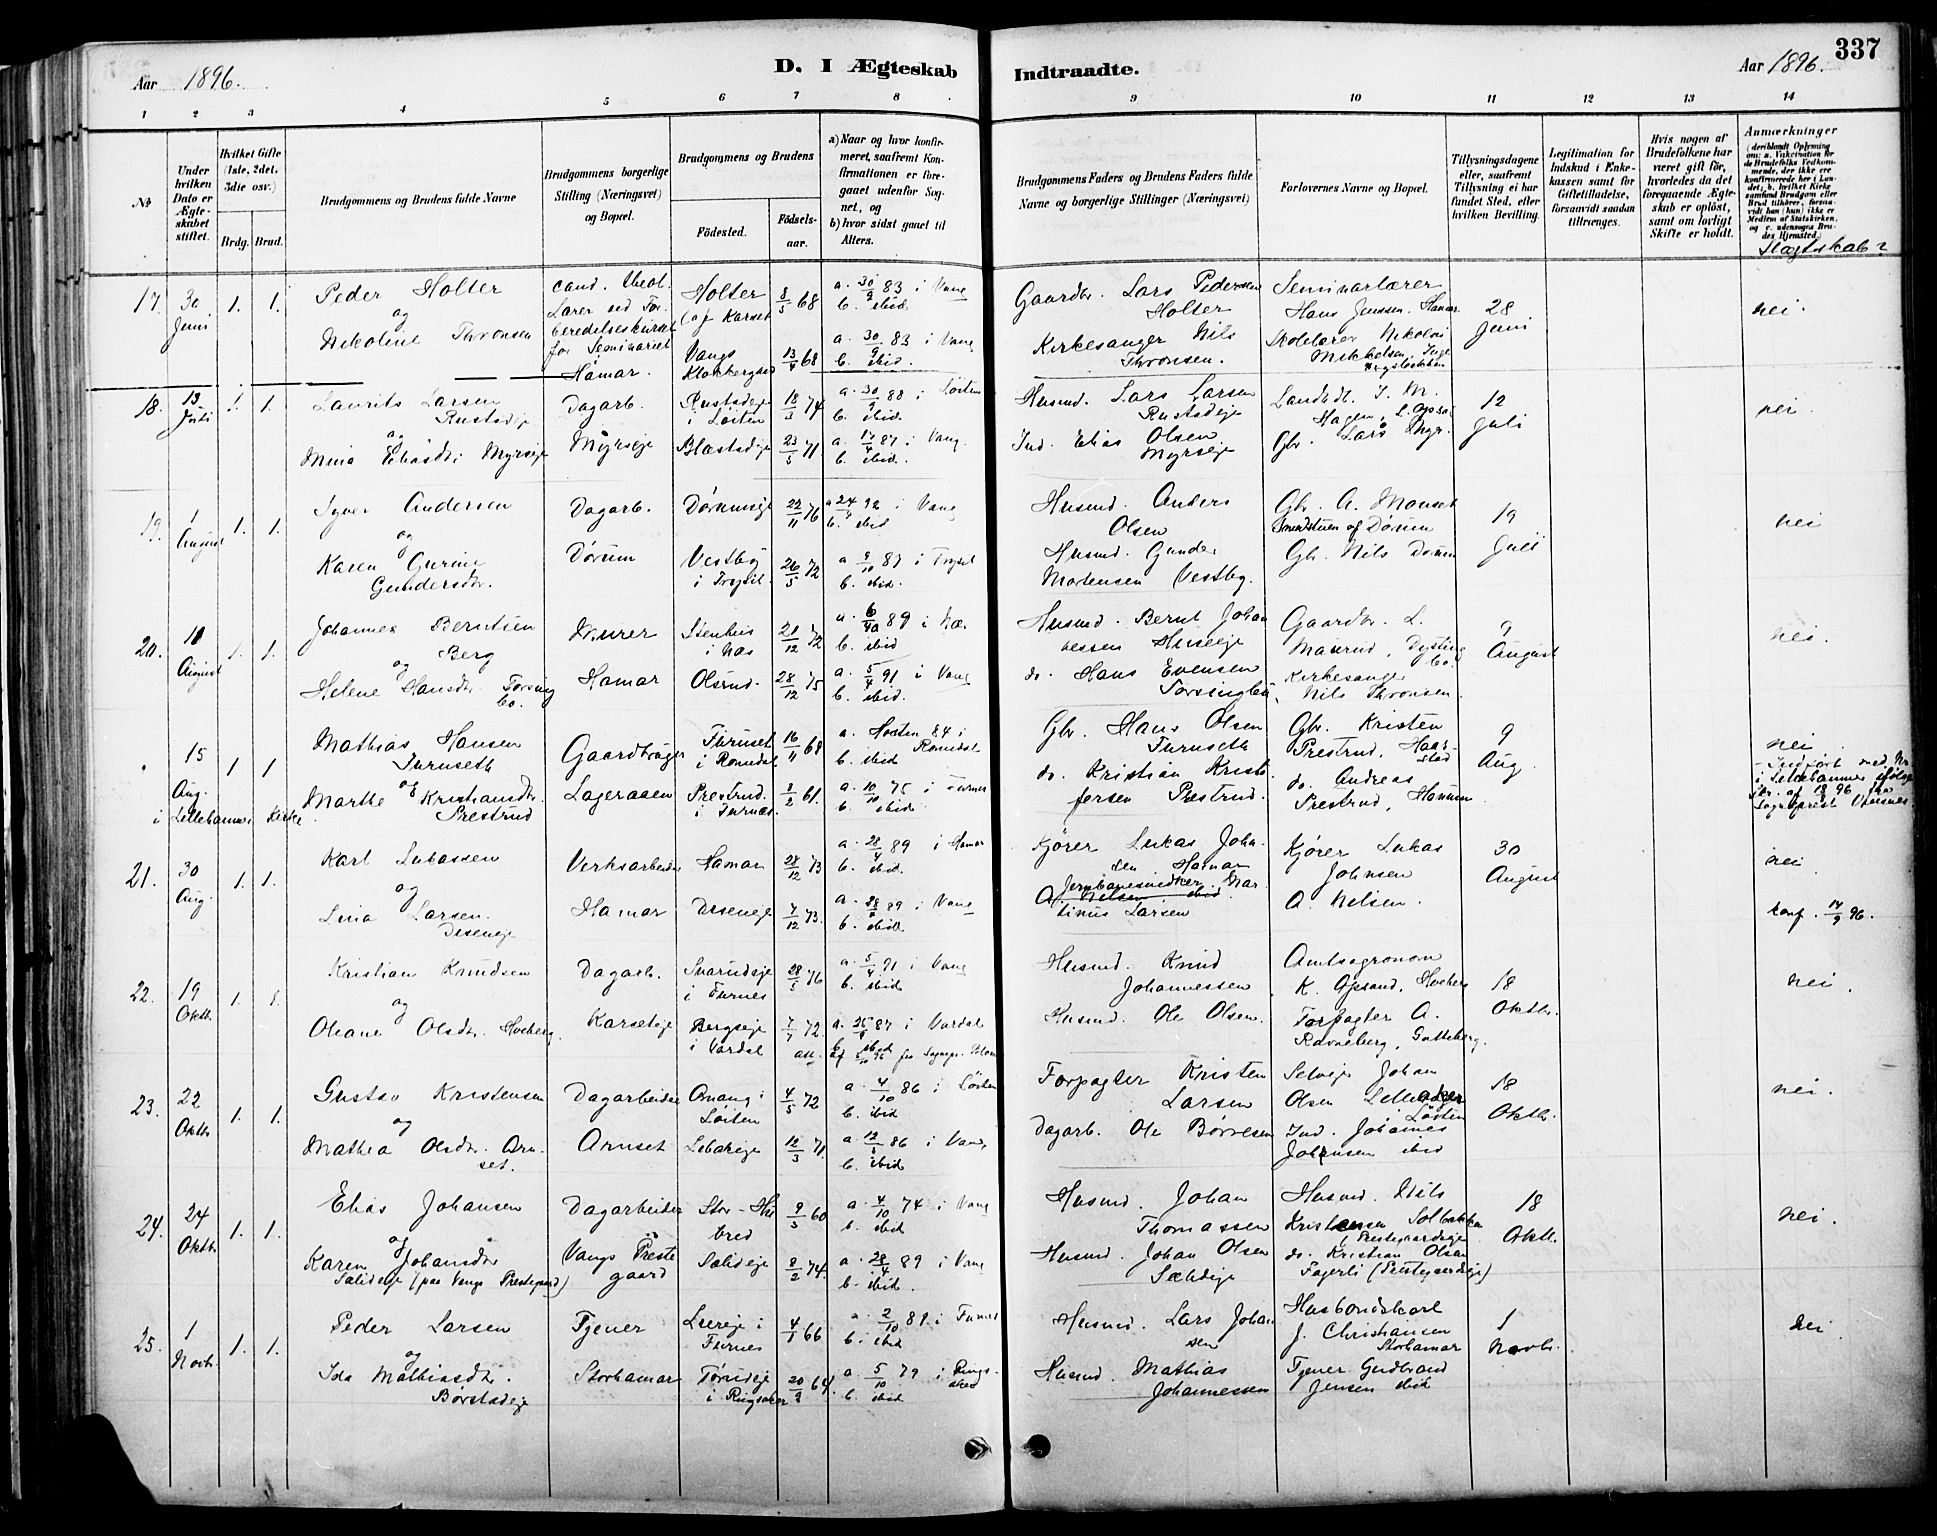 Aar 1896.
D. I Ægteskab
Indtraadte.
Aar 1896.
337
1 2 3 4 5 6 7 8 9 10 11 12 13 14
No
Under hvilken Dato er Ægteskabet stiftet.
Hvilket Gifte (1ste, 2det, 3die osv.)
Brdg. Brud.
Brudgommens og Brudens fulde Navne
Brudgommens borgerlige Stilling (Næringsvei) og Bopæl.
Brudgommens og Brudens
Fødested.
Fødselsaar.
a) Naar og hvor konfirmeret, saafremt Konfirmationen er foregaaet udenfor Sognet, og
b) hvor sidst gaaet til Alters.
Brudgommens Faders og Brudens Faders fulde Navne og borgerlige Stillinger (Næringsvei)
Forlovernes Navne og Bopæl.
Tillysningsdagene eller, saafremt Tillysning ei har fundet Sted, efter hvilken Bevilling.
Legitimation for Indskud i Enkekassen samt for Giftetilladelse, forsaavidt saadan tiltrænges.
Hvis nogen af Brudefolkene har været gift før, hvorledes da det foregaaende Ægteskab er opløst, samt om lovligt Skifte er holdt.
Anmærkninger
(deriblandt Oplysning om: a. Vaksination for de Brudefolks Vedkommende, der ikke ere konfirmerede her i Landet; b. hvilket Kirkesamfund Brudgom eller Brud tilhører, forsaavidt han (hun) ikke er Medlem af Statskirken, og c. udensogns Brudes Hjemsted.)
Slægtskab?
17. 30 Juni 1. 1.
Peder Holter
og
Nikoline Thronsen
cand. theol.
Lærer ved Forberedelseskurset
for Seminariet
Hamar.
Holter
(af Karset
Vangs
Klokkergaard
8/5 68
13/4 68
a. 30/9 83 i Vang
b. ibid.
a. 30/9 83 i Vang
b. ibid.
Gaardbr. Lars Pedersen
Holter
Kirkesanger Nils
Thronsen.
Seminarlærer
Hans Jenssen, Hamar
Skolelærer Nikolai
Mikkelsen,
28 Juni
nei.
18. 13 Juli 1. 1.
Laurits Larsen
Rustadeje
og
Mina Eliasdr. Myrseje
Dagarb.
Myrseje
Rustadeje
i Løiten
Blæstadeje
18/3 74
23/5 71.
a. 30/9 88 i Løiten
b. ibid.
a. 17/4 87 i Vang.
b. ibid.
Husmd. Lars Larsen
Rustadeje
Ind. Elias Olsen
Myrseje
Landhdl. I. M.
Hagen,
Gbr. Lars Myr.
12 Juli
nei.
19. 1 August 1. 1.
Syver Andersen
og
Karen Gurine
Gundersdr.
Dagarb.
Dørum
Dørumseje
Vestby
i Trysil.
22/11 76
26/5 72
a. 24/4 92 i Vang
b. ibid
a. 9/10 87 i Trysil
b. ibid.
Husmd. Anders
Olsen
Husmd. Gunder
Mortensen Vestby.
Gbr. A. Monset
Smedstuen af Dørum
Gbr. Nils Dørum
19 Juli
nei
20. 10 August 1. 1.
Johannes Berntsen
Berg
og
Helene Hansdr. Torsingbo.
Murer
Hamar
Stenhus
i Næs
Olsrud.
21/12 72
28/12 75
a. 6/10 89 i Næs.
b. ibid
a. 5/4 91 i Vang
b. ibid.
Husmd. Bernt Johannessen
do. Hans Evensen
Torsingbo,
Gaardbr. L.
Maurud, Dystingbo.
Kirkesanger
Nils Thronsen.
9 August
nei.
15 Aug. 1 1
i Lillehammer Kirke
Mathias Hansen
Furuseth
og
Marthe Kristiansdr.
Prestrud
Gaardbruger
Lageraaen
Furuset
i Romedal
Prestrud.
i Furnæs.
16/11 68
8/2 61.
a. Høsten 84 i Romedal
b. ibid
a. 10/10 75 i Furnes
b. ibid.
Gbr. Hans Olsen
Furuseth
do. Kristian Kristofersen Prestrud.
Gbr. Kristen
Prestrud, Haarstad
do. Andreas
Prestrud, Hamum
9 Aug.
nei
21. 30 Aug. 1. 1.
Karl Lukassen
og
Lina Larsen.
Deseneje
Verksarbeider
Hamar
Hamar
Deseneje
28/12 73
7/12 73.
a. 28/4 89 i Hamar
b. ibid.
a. 28/4 89 i Vang
b. ibid.
Kjører Lukas Johnsen Hamar
Jernbanesnedker Martinus Larsen
A. Nilsen, ibid.
Kjører Lukas
Johnsen
A. Nilsen.
30 August
nei
konf. 14/9 96.
22. 19 Oktbr. 1. 1.
Kristian Knudsen
og
Oliane Olsdr. Hoeberg.
Dagarb.
Karseteje
Svarudeje
i Furnes
Bergseje
i Vardal
28/5 76
7/7 72.
a. 5/4 91 i Vang
b. ibid
a. 25/9 87 i Vardal
b. ibid
Husmd. Knud
Johannessen
Husmd. Ole Olsen.
Amtsagronom
K. Opsand, Hoeberg
Forpagter A.
Ravneberg, Gaalteberg.
18 Oktbr.
nei.
23. 22 Oktbr 1. 1.
Gustav Kristensen
og
Mathea Olsdr. Arnset.
Dagarbeider
Arnset
Omang i
Løiten
Lebereje
4/5 72
12/3 71.
a. 4/10 86 i Løiten
b. ibid
a. 12/5 86 i Vang
b. ibid
Forpagter Kristen
Larsen
Dagarb. Ole Børresen
Selveje Johan
Olsen
Løiten
Ind. Johannes
Johansen ibid
18 Oktbr.
nei.
24. 24 Oktbr 1. 1.
Elias Johansen
og
Karen Johansdr
Sælideje (paa Vangs Prestegaard)
Dagarbeider
Vangs Prestegaard
Stor-Hubred
Sælideje
9/3 60
8/2 74.
a. 4/10 74 i Vang
b. ibid.
a. 28/4 89 i Vang
b. ibid.
Husmd. Johan
Thomassen
Husmd. Johan Olsen
Sælideje
Husmd. Nils
Kristensen Solbakken
(Prestegaardseje)
do. Kristian Olsen
Fagerli (Prestegaardseje)
18 Oktb.
nei.
25. 1 Novbr. 1. 1.
Peder Larsen
og
Ida Mathiasdr.
Børstadeje
Tjener
Storhamar
Liereje i
Furnes
Tørudeje
i Ringsaker
4/1 66
20/9 64.
a. 2/10 81. i Furnes
b. ibid
a. 5/10 79 i Ringsaker
b. ibid
Husmd. Lars Johansen
Husmd. Mathias
Johannessen
Husbondskarl
J. Christiansen
Storhamar
Tjener Gudbrand
Jensen ibid
1 Novbr.
nei.